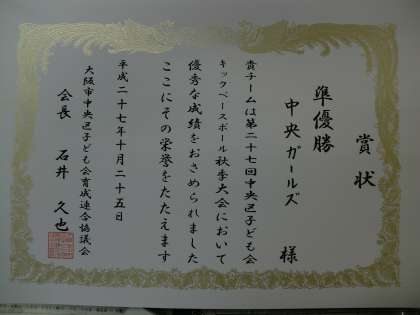 賞状
準優勝
中央ガールズ 様
貴チームは第二十七回中央区子ども会
キックベースボール秋季大会において
優秀な成績をおさめられました
ここにその栄誉をたたえます
平成二十七年十月二十五日
大阪市中央区子ども会育成連合協議会
会長 石井 久也